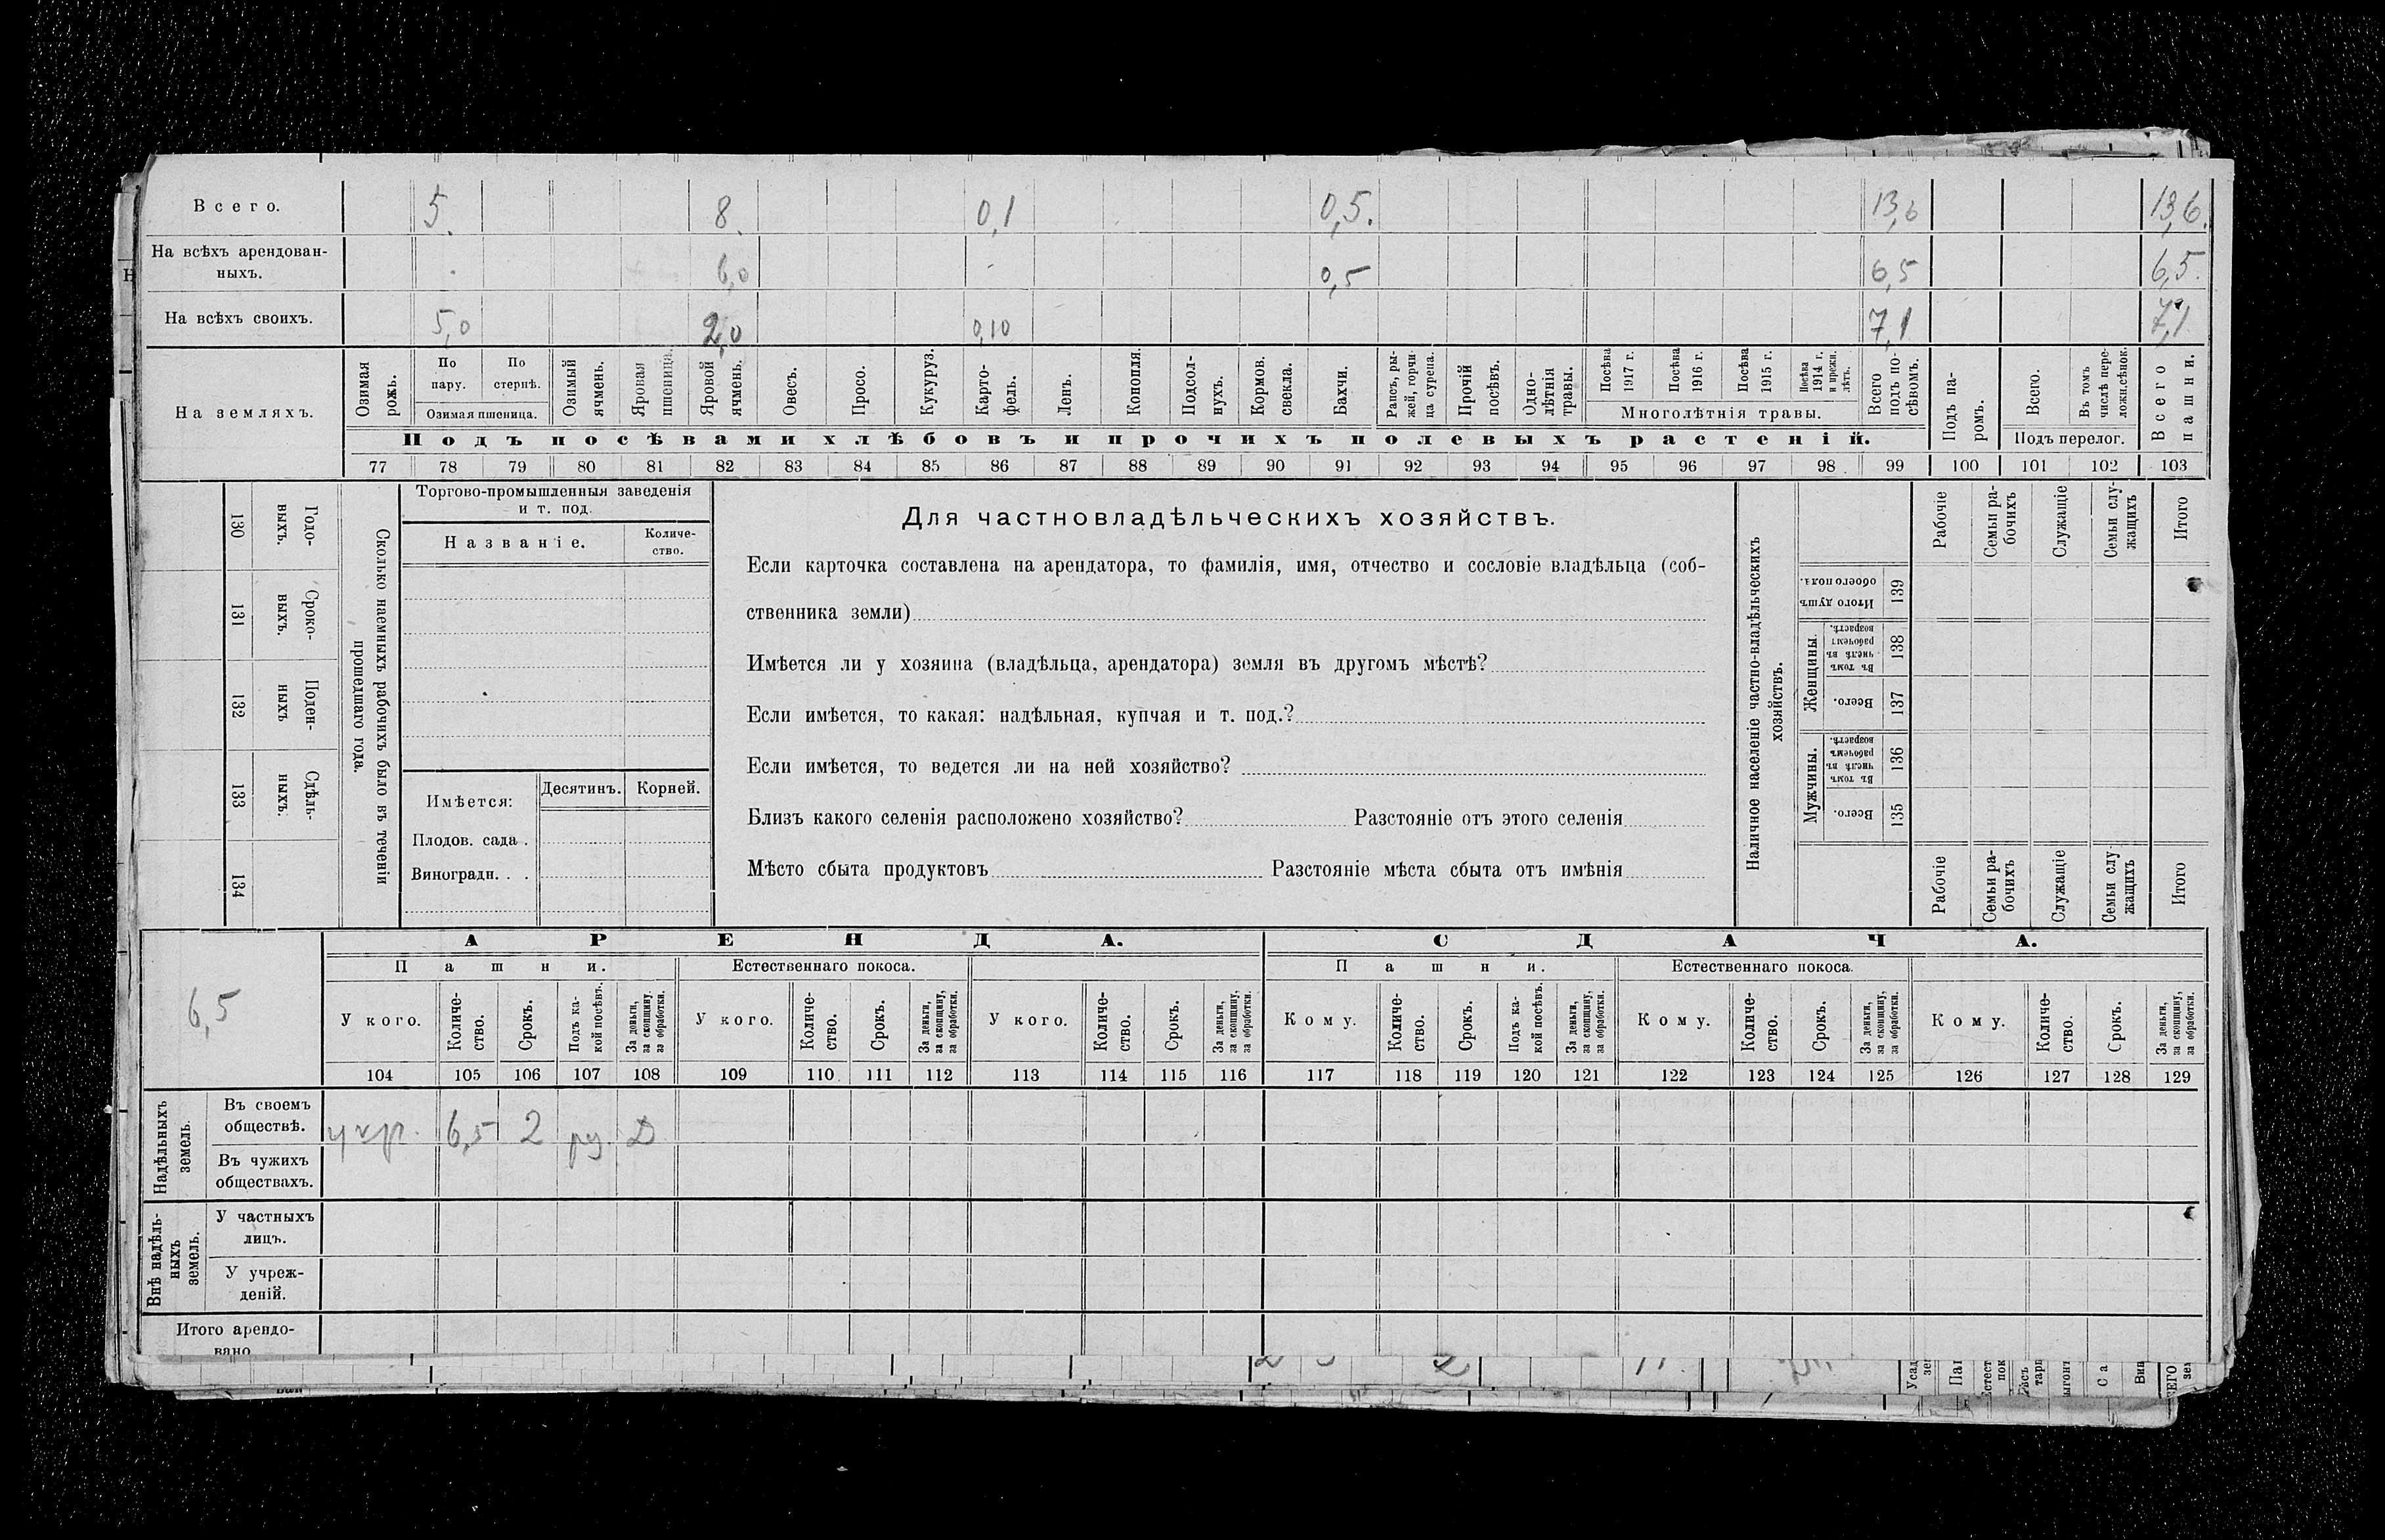 Всего. 5. 8. 0,1 0,5. 13,6 13,6.
На всѣхъ арендован-
ныхъ. 6,0 - 0,5 6,5 6,5.
На всѣхъ своихъ. 5,0 2,0 0,10 7,1 7,1
На земляхъ.
Озимая рожь.
По пару.
По стернѣ.
Озимая пшеница.
Озимый ячмень.
Яровая пшеница.
Яровой ячмень.
Овесъ.
Просо.
Кукуруз.
Карто-
фель.
Ленъ.
Конопля.
Подсол-
нухъ.
Кормов. свекла.
Бахчи.
Рапсъ, ры-
жей, горчи-
ца сурепа.
Прочій посѣвъ.
Одно-
лѣтнія травы.
Посѣва 1917 г.
Посѣва 1916 г.
Посѣва 1915 г.
Посѣва 1914 г. и прежн. лѣтъ.
Многолѣтнія травы.
Всего подъ по-
сѣвомъ.
Подъ па-
ромъ.
Всего.
Въ томъ числѣ пере-
ложн.сѣнок.
Подъ перелог.
Всего пашни.
Подъ посѣвами хлѣбовъ и прочихъ полевыхъ растеній.
77 78 79 80 81 82 83 84 85 86 87 88 89 90 91 92 93 94 95 96 97 98 99 100 101 102 103
130 Годо-
выхъ.
131 Сроко-
выхъ.
132 Поден-
ныхъ
133 Сдѣль-
ныхъ.
134
Сколько наемныхъ рабочихъ было въ теченіи
прошедшаго года.
Торгово-промышленныя заведенія
и т. под.
Названіе.
Количе-
ство.
Имѣется:
Десятинъ. Корней.
Плодов. сада .
Виноградн. . .
Для частновладѣльческихъ хозяйствъ.
Если карточка составлена на арендатора, то фамилія, имя, отчество и сословіе владѣльца (соб-
ственника земли)
Имѣется ли у хозяина (владѣльца, арендатора) земля въ другомъ мѣстѣ?
Если имѣется, то какая: надѣльная, купчая и т. под.?
Если имѣется, то ведется ли на ней хозяйство?
Близъ какого селенія расположено хозяйство? Разстояніе отъ этого селенія
Мѣсто сбыта продуктовъ Разстояніе мѣста сбыта отъ имѣнія
Наличное населеніе частно-владѣльческихъ
хозяйствъ.
Рабочіе
Семьи ра-
бочихъ
Служащіе
Семьи слу-
жащихъ
Итого
Итого душъ обоего пола. 139
Женщины.
Въ томъ числѣ въ рабочемъ возрастѣ. 138
Всего. 137
Мужчины.
Въ томъ числѣ въ рабочемъ возрастѣ. 136
Всего. 135
Рабочіе
Семьи ра-
бочихъ
Служащіе
Семьи слу-
жащихъ
Итого
6,5
АРЕНДА. СДАЧА.
Пашни. Естественнаго покоса. Пашни. Естественнаго покоса.
У кого.
Количе-
ство.
Срокъ.
Подъ ка-
кой посѣвъ.
За деньги,
за скопщину,
за обработки.
У кого.
Количе-
ство.
Срокъ.
За деньги,
за скопщину,
за обработки.
У кого.
Количе-
ство.
Срокъ.
За деньги,
за скопщину,
за обработки.
Кому.
Количе-
ство.
Срокъ.
Подъ ка-
кой посѣвъ.
За деньги,
за скопщину,
за обработки.
Кому.
Количе-
ство.
Срокъ.
За деньги,
за скопщину,
за обработки.
Кому.
Количе-
ство.
Срокъ.
За деньги,
за скопщину,
за обработки.
104 105 106 107 108 109 110 111 112 113 114 115 116 117 118 119 120 121 122 123 124 125 126 127 128 129
Надѣльныхъ
земель.
Въ своемъ
обществѣ. 6,5 2 Д
Въ чужихъ
обществахъ.
Внѣ надѣль-
ныхъ
земель.
У частныхъ
лицъ.
У учреж-
деній.
Итого арендо-
вано